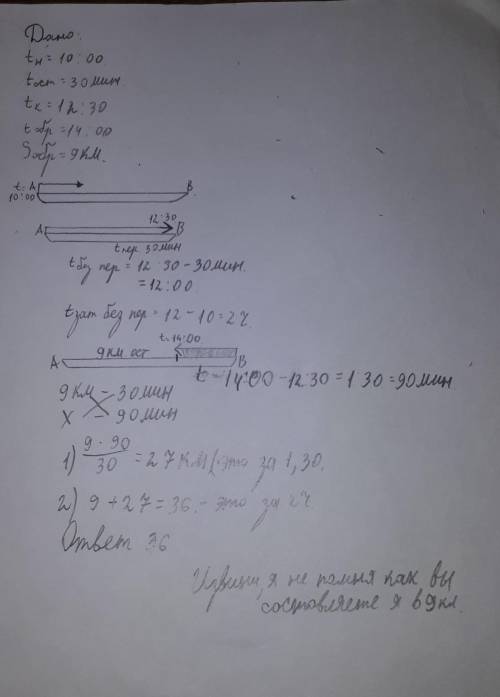 Дано:
tн = 10:00
tост = 30 мин
tк = 12:30
tобр = 14:00
Sобр = 9 км.
t. A B
10:00
12:30
A B
tпер 30 мин
tбуз пер = 12 30 - 30 мин.
= 12:00
tзат без пер = 12 - 10 = 2 ч.
t. 14:00
9 км ост
A B
t - 14:00 - 12:30 = 1 30 = 90 мин
9 км - 30 мин
x - 90 мин
1) 9 · 90 / 30 = 27 км/ это за 1,30.
2) 9 + 27 = 36 - это за 2 ч.
Ответ 36
Извини, я не помня как вы
составляете я в 9 кл.